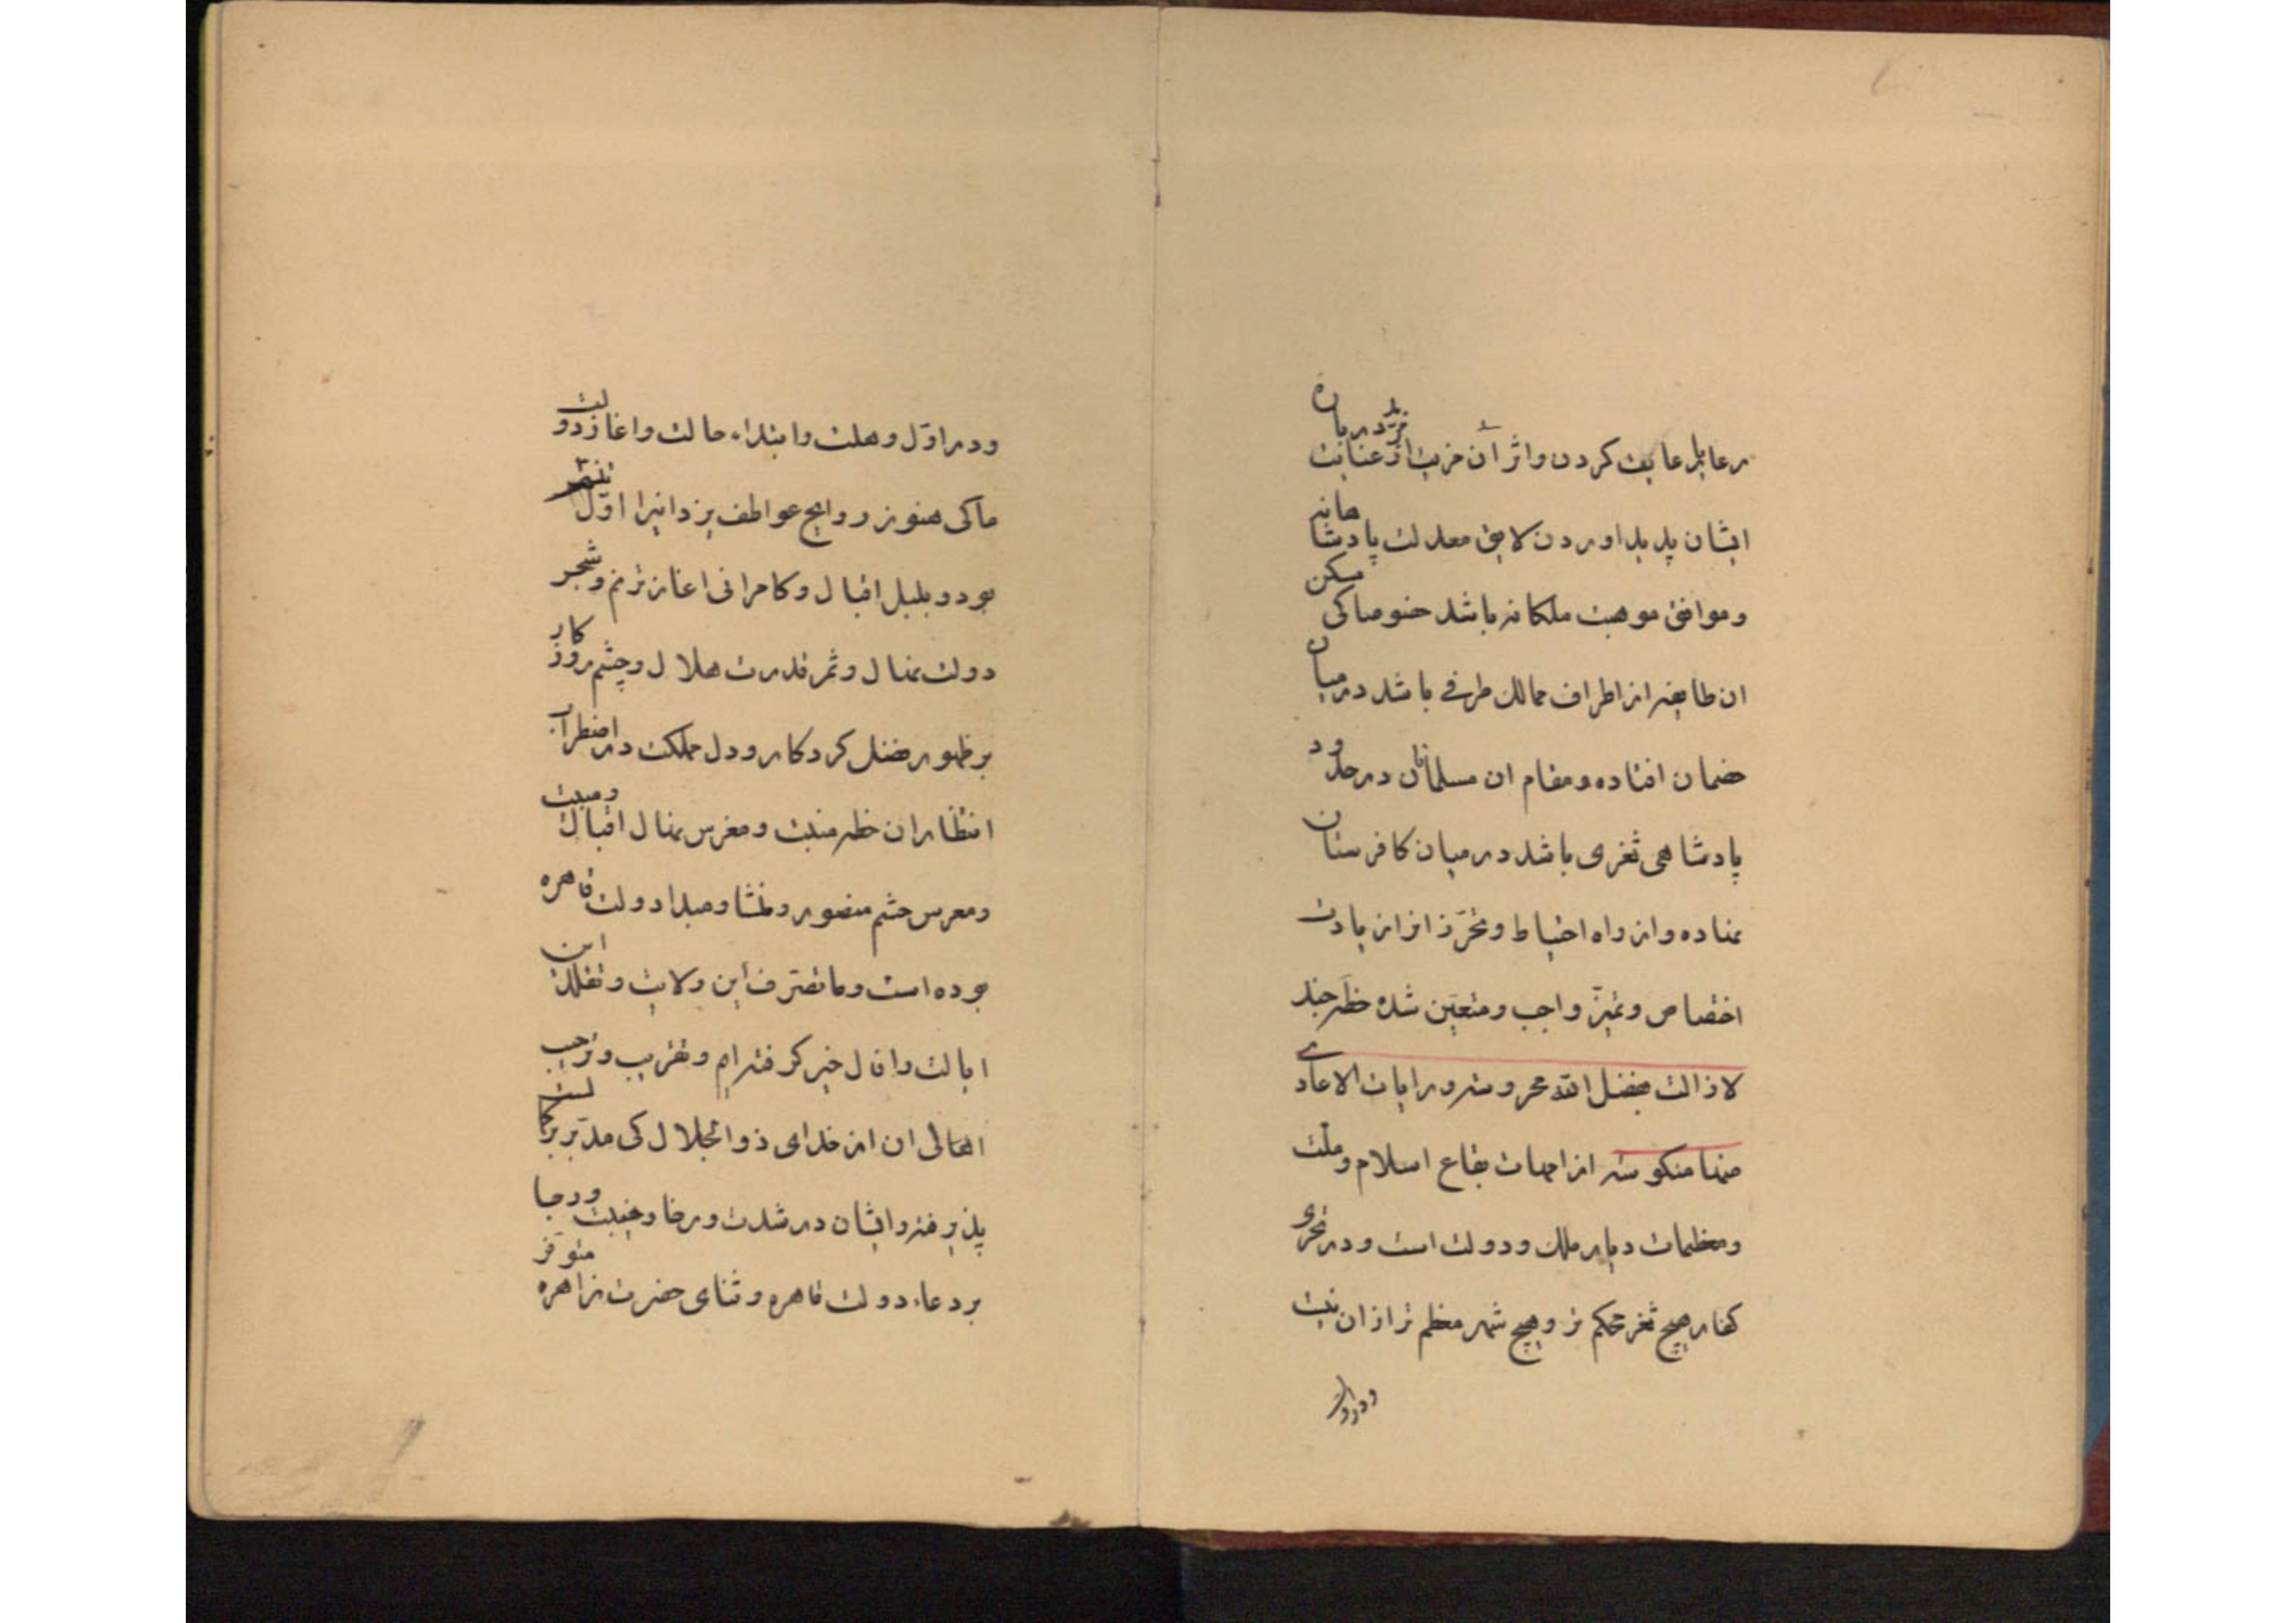 رعایا رعایت کردن و اثر آن مزید از عنایت در باره
ایشان پدید اوردن لایق معدلت پادشاهانه
و موافق موهبت ملکانه باشد خصوصا کی مسکن
ان طایفه از اطراف ممالک طرفی باشد در میان
خصمان افتاده و مقام ان مسلمانان در حدود
پادشاهی ثغری باشد در میان کافرستان
نهاده و از راه احتیاط و تحرّز از ان بادت
اختصاص و تمیّز واجب و متعیّن شده خطّه جند
لازالت بفضل الله محروسه و رایات الاعادی
عنها منکوسه از امهات بقاع اسلام و ملّت
و معظمات دیار ملک و دولت است و در نحری
کفار هیچ ثغر محکم تر و هیچ شهر معظم تر از ان نیست
ودر اول
ودر اوّل وهلت و ابتداء حالت و اغاز دولت
ما کی هنوز روایح عواطف یزدانیرا اوّل تنسّم
بود و بلبل اقبال و کامرانی اغاز ترنم و شجر
دولت نهال و ثمر قدرت هلال و چشم روزکار
بر ظهور فضل کردکار و دل مملکت در اضطراب
انتظار ان خطه منبت و مغرس نهال اقبال و مبیت
و معرس حشم منصور و منشا و مبدا دولت قاهره
بوده است و ما تصرّف این ولایت و تقلّد این
ایالت را فال خیر کرفته ایم و تقریب و ترحیب
اهالی ان از خدای ذوالجلال کی مدبّر بر کمالست
پذیرفته و ایشان در شدت و رخا و خیبت و رجا
بر دعاء دولت قاهره و ثنای حضرت زاهره متوفّر